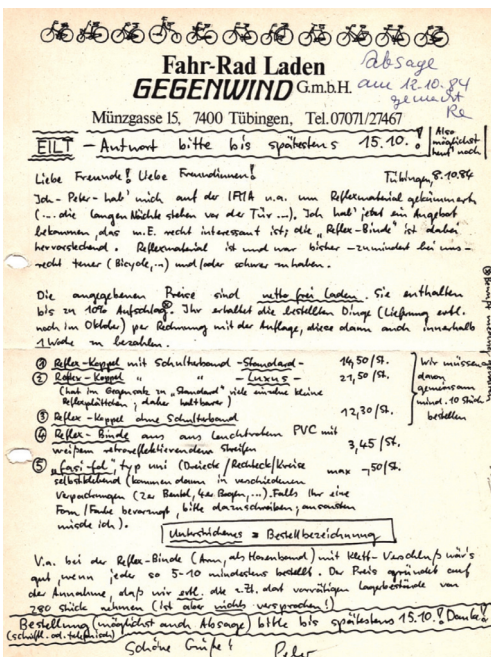 Absage
am 12.10.84
gemacht
Re
Fahr-Rad Laden
GEGENWIND G.m.b.H.
Münzgasse 15, 7400 Tübingen, Tel. 07071/27467
EILT - Antwort bitte bis spätestens 15.10.!
Also
möglichst
heut' noch
Liebe Freunde! Liebe Freundinnen! Tübingen, 8.10.84
Ich - Peter - hab' mich auf der IFMA u.a. um Reflexmaterial gekümmert
(... die langen Nächte stehen vor der Tür ...), Ich hab' jetzt ein Angebot
bekommen, das m.E. recht interessant ist; die „Reflex-Binde" ist dabei
hervorstechend. Reflexmaterial ist und war bisher - zumindest bei uns -
recht teuer (Bicycle, ...) und/oder schwer zu haben.
Die angegebenen Preise sind netto frei Laden. Sie enthalten
bis zu 10% Aufschlag. Ihr erhaltet die bestellten Dinge (Lieferung evtl.
noch im Oktober) per Rechnung mit der Auflage, diese dann auch innerhalb
1 Woche zu bezahlen.
① Reflex-Koppel mit Schulterband - Standard - 14,50/St.
② Reflex-Koppel " " - Luxus - 21,50/St.
(hat im Gegensatz zu „Standard" viele einzelne kleine
Reflexplättchen, daher haltbarer)
③ Reflex-Koppel ohne Schulterband 12,30/St.
Wir müssen
davon
gemeinsam
mind. 10 Stück
bestellen
④ Reflex-Binde aus leuchtrotem PVC mit
weißem retroreflektierendem Streifen 3,45/St.
⑤ "fasi-fol", typ uni (Dreiecke/Rechtecke/Kreise max -,50/St.
selbstklebend (kommen dann in verschiedenen
Verpackungen (2er Beutel, 4er Bogen, ...). Falls Ihr eine
Form/Farbe bevorzugt, bitte dazuschreiben, ansonsten
mische ich).
Unterstrichenes = Bestellbezeichnung
V.a. bei der Reflex-Binde (Arm, als Hosenband) mit Klett-Verschluß wär's
gut, wenn jeder so 5-10 mindestens bestellt. Der Preis gründet auf
der Annahme, daß wir evtl. die z.Zt. dort vorrätigen Lagerbestände von
280 Stück nehmen (ist aber nichts versprochen!)
Bestellung (möglichst auch Absage) bitte bis spätestens 15.10.! Danke!
(schriftl. od. telefonisch)
Schöne Grüße! Peter